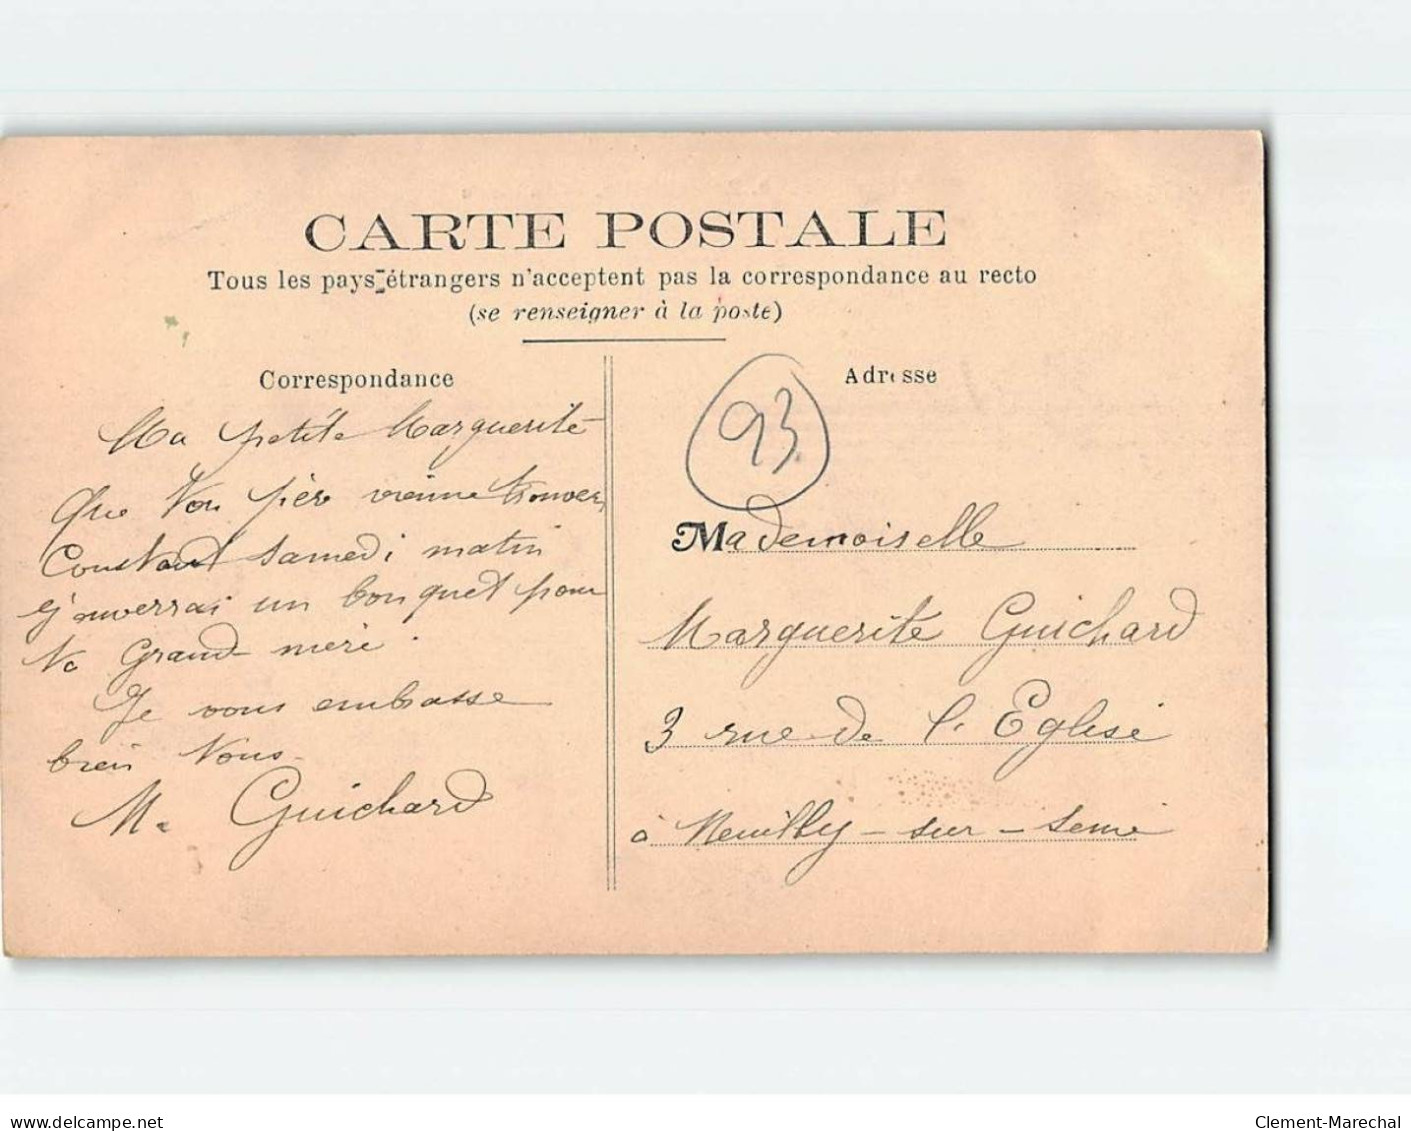 CARTE POSTALE
Tous les pays étrangers n'acceptent pas la correspondance au recto
(se renseigner à la poste)
Correspondance
Ma petite Marguerite
Que Ton père vienne trouver
Constant samedi matin
j'enverrai un bouquet pour
Ta Grand mère.
Je vous embrasse
bien Tous.
M. Guichard
Adresse
93.
Mademoiselle
Marguerite Guichard
3 rue de l'Eglise
à Neuilly-sur-Seine
www.delcampe.net
Clement-Marechal